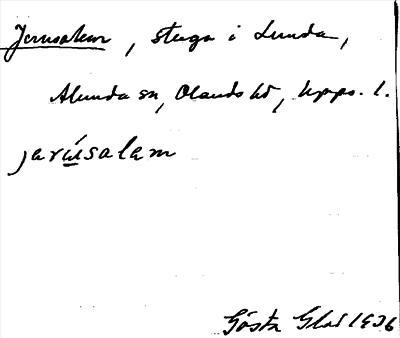 Jerusalem, stuga i Lunda,
Alunda sn, Olands hd, Upps. l.
jarúsalam
Gösta Glad 1936